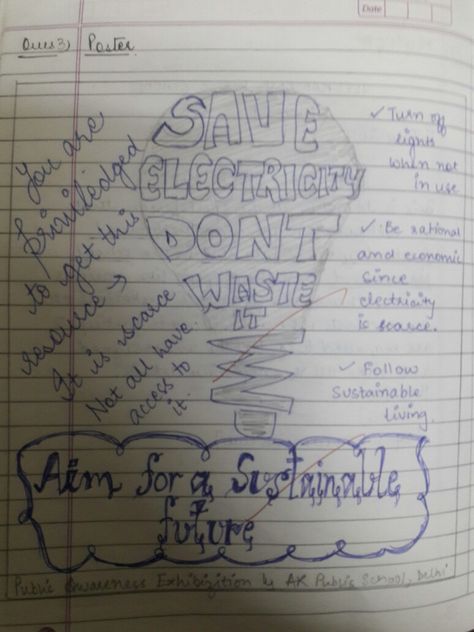 Date
Ques 3) Poster
You are
priviledged
to get this
resource →
It is scarce
Not all have
access to
it.
SAVE
ELECTRICITY
DONT
WASTE
IT
✓ Turn off
lights
when not
in use
✓ Be rational
and economic
since
electricity
is scarce.
✓ Follow
sustainable
living.
Aim for a Sustainable
future
Public Awareness Exhibition by AK Public School, Delhi